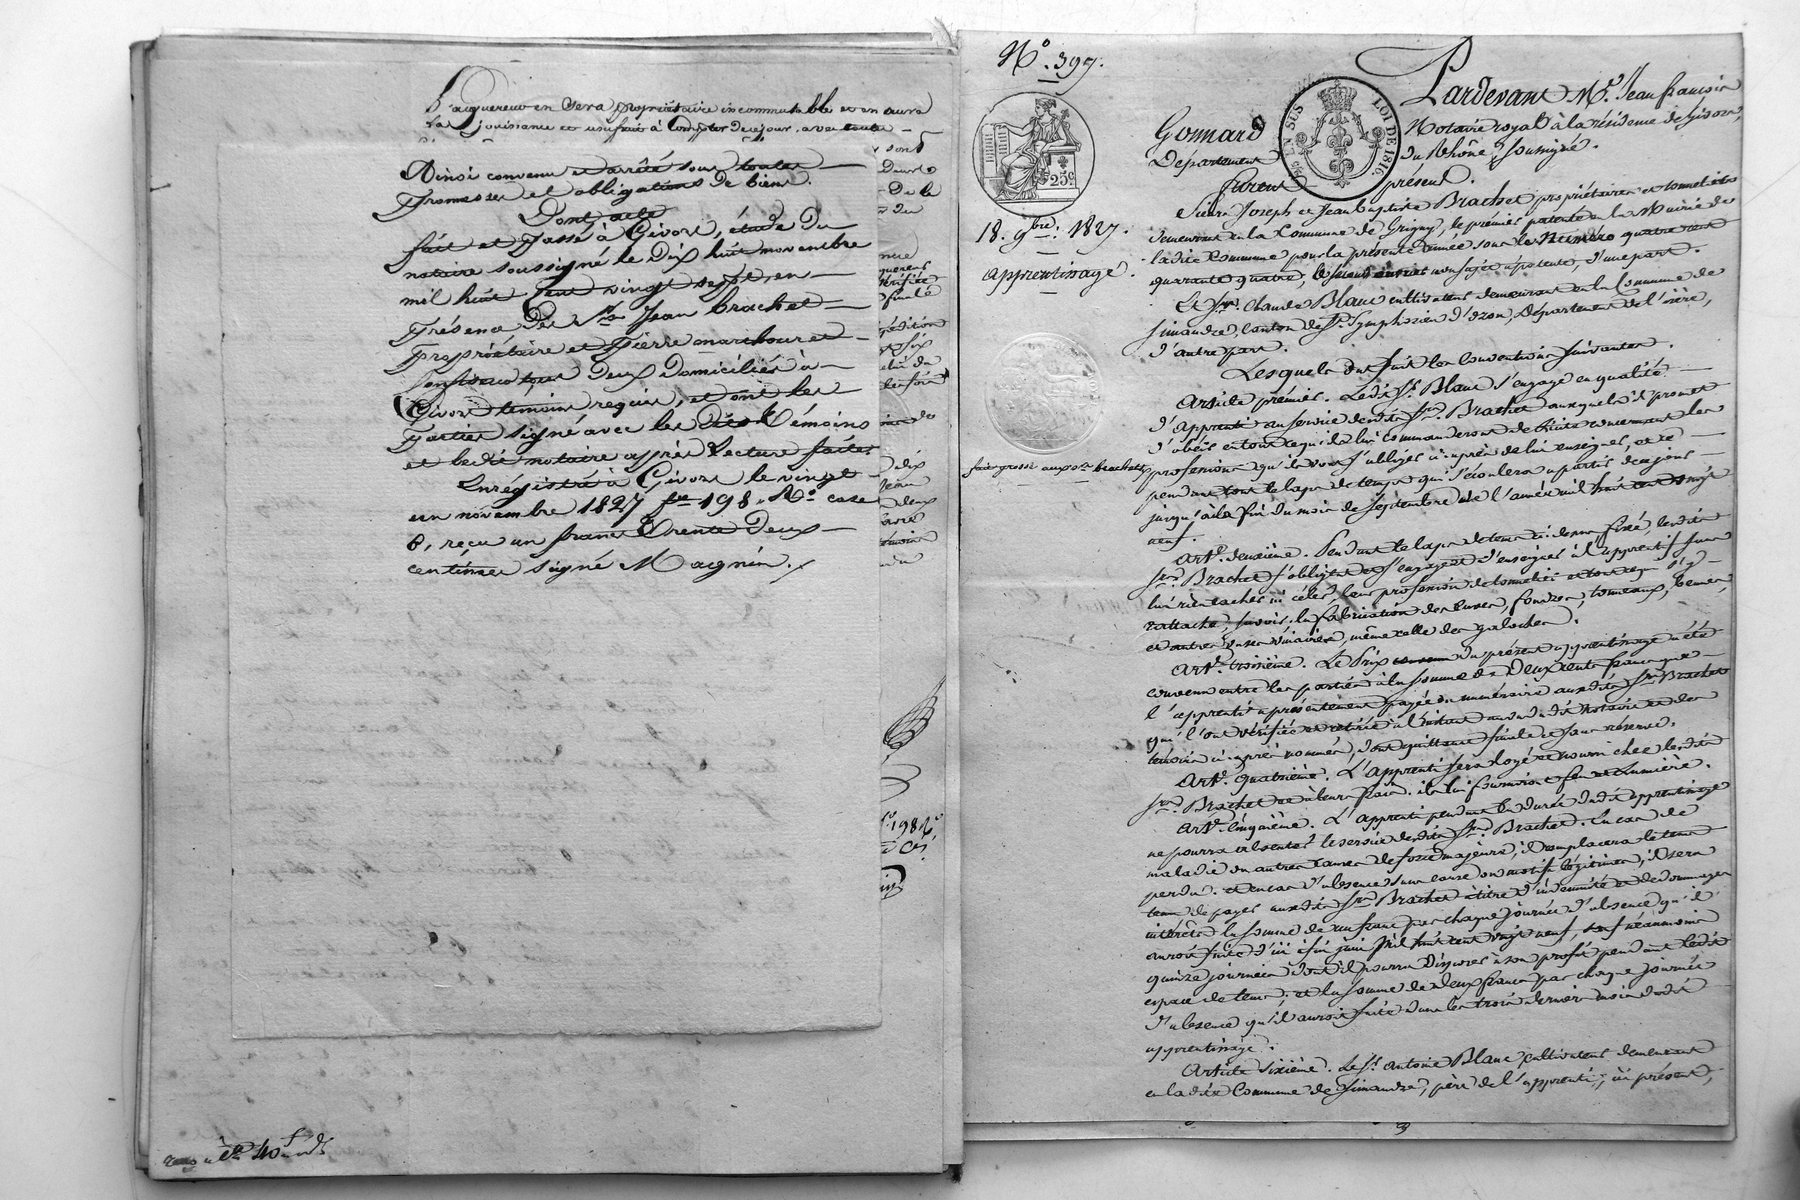 L'acquereur en sera propriétaire incommutable et en aura
la jouissance et usufruit à compter de ce jour, avec toute
Ainsi convenu et arrêté sous toutes
Promesses et obligations de biens.
Dont acte
fait et Passé à Givors, étude du
notaire soussigné le Dix huit novembre
mil huit Cent vingt sept, en
Présence des Srs Jean brachet
propriétaire et Pierre
tous Deux Domiciliés à
Givors temoins requis, et ont les
Parties signé avec les témoins
et ledit notaire après Lecture faite
Enrégistré à Givors le vingt
un novembre 1827 fo 198 Ro case
6, reçu un franc trente Deux
centimes signé Magnin.
198 Ro
No. 397.
25c
LOI DE 1816.
EN SUS
18. 9bre. 1827.
apprentissage.
fait grosse aux srs brachet
Pardevant Me. Jean francois
Gonnard Notaire royal à la résidence de Givors,
Département du Rhône, soussigné.
furent présens.
Sieurs Joseph et Jean Baptiste Brachet propriétaires et tonneliers
demeurans en la Commune de Grigny, le premier patenté en la Mairie de
ladite Commune pour la présente année sous le Numéro quatre cent
quarante quatre, le second non sujet à patente, d'une part.
Et Sr. Claude Blanc cultivateur demeurant en la Commune de
Simandre, canton de St. Symphorien d'ozon, Département de l'isère,
d'autre part.
Lesquels ont fait les Conventions suivantes.
Article premier. Ledit Sr. Blanc s'engage en qualité
d'apprenti au service desdits Srs. Brachet auxquels il promet
d'obéir en tout ce qu'ils lui commanderont de licite concernant les
professions qu'ils vont s'obliger ci-après de lui enseigner, et ce
pendant tout le laps de temps qui s'écoulera à partir de ce jour
jusqu'à la fin du mois de Septembre de l'année mil huit cent vingt
neuf.
Art. deuxième. Pendant le laps de tems ci-dessus fixé, lesdits
Srs. Brachet s'obligent et s'engagent d'enseigner à l'apprentif sans
lui rien cacher ni céler, leur profession de tonnelier et tout ce qui s'y
rattache, savoir, la fabrication des cuves, foudres, tonneaux, bennes,
et autres vases vinaires, même celle des galoches.
Art. troisième. Le Prix du présent apprentissage a été
convenu entre les parties à la somme de Deux cents francs que
l'apprenti a présentement payée en numéraire auxdits Srs Brachet
qui l'ont vérifiée et retirée à l'instant au vu dudit Notaire et des
témoins ci-après nommés, dont quittance finale et sans réserve.
Art. quatrième. L'apprenti sera logé et nourri chez lesdits
Srs. Brachet et à leurs frais. ils lui fourniront feu et Lumière.
Art. cinquième. L'apprenti pendant la durée dudit apprentissage
ne pourra absenter le service desdits Srs. Brachet. En cas de
maladie ou autres causes de force majeure, il remplacera le tems
perdu. et en cas d'absence sans cause ou motifs légitimes, il sera
tenu de payer auxdits Srs Brachet à titre d'indemnité et de dommages
intérêts la somme de un franc par chaque journée d'absence qu'il
auroit faite d'ici à fin juin Mil huit cent vingt neuf, sauf néanmoins
quinze journées dont il pourra disposer à son profit pendant ledit
espace de tems, et la somme de deux francs par chaque journée
d'absence qu'il auroit faite dans les trois derniers mois dudit
apprentissage.
Article sixième. Le Sr antoine Blanc cultivateur demeurant
en ladite Commune de Simandre, père de l'apprenti, ici présent,